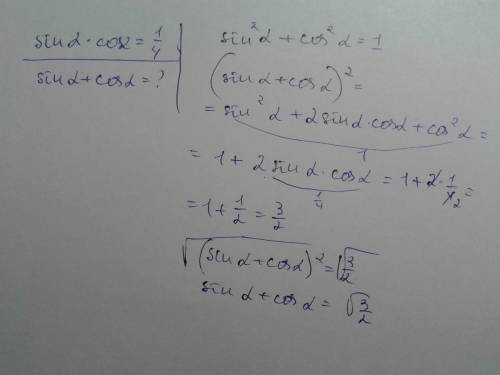 sinα·cosα = 1/4
sinα+cosα = ?
sin²α + cos²α = 1
(sinα + cosα)² =
= sin²α + 2sinα·cosα + cos²α =
1
= 1 + 2·sinα·cosα = 1 + 2·1/4 2 =
1/4
= 1 + 1/2 = 3/2
√(sinα + cosα)² = √3/2
sinα + cosα = √3/2